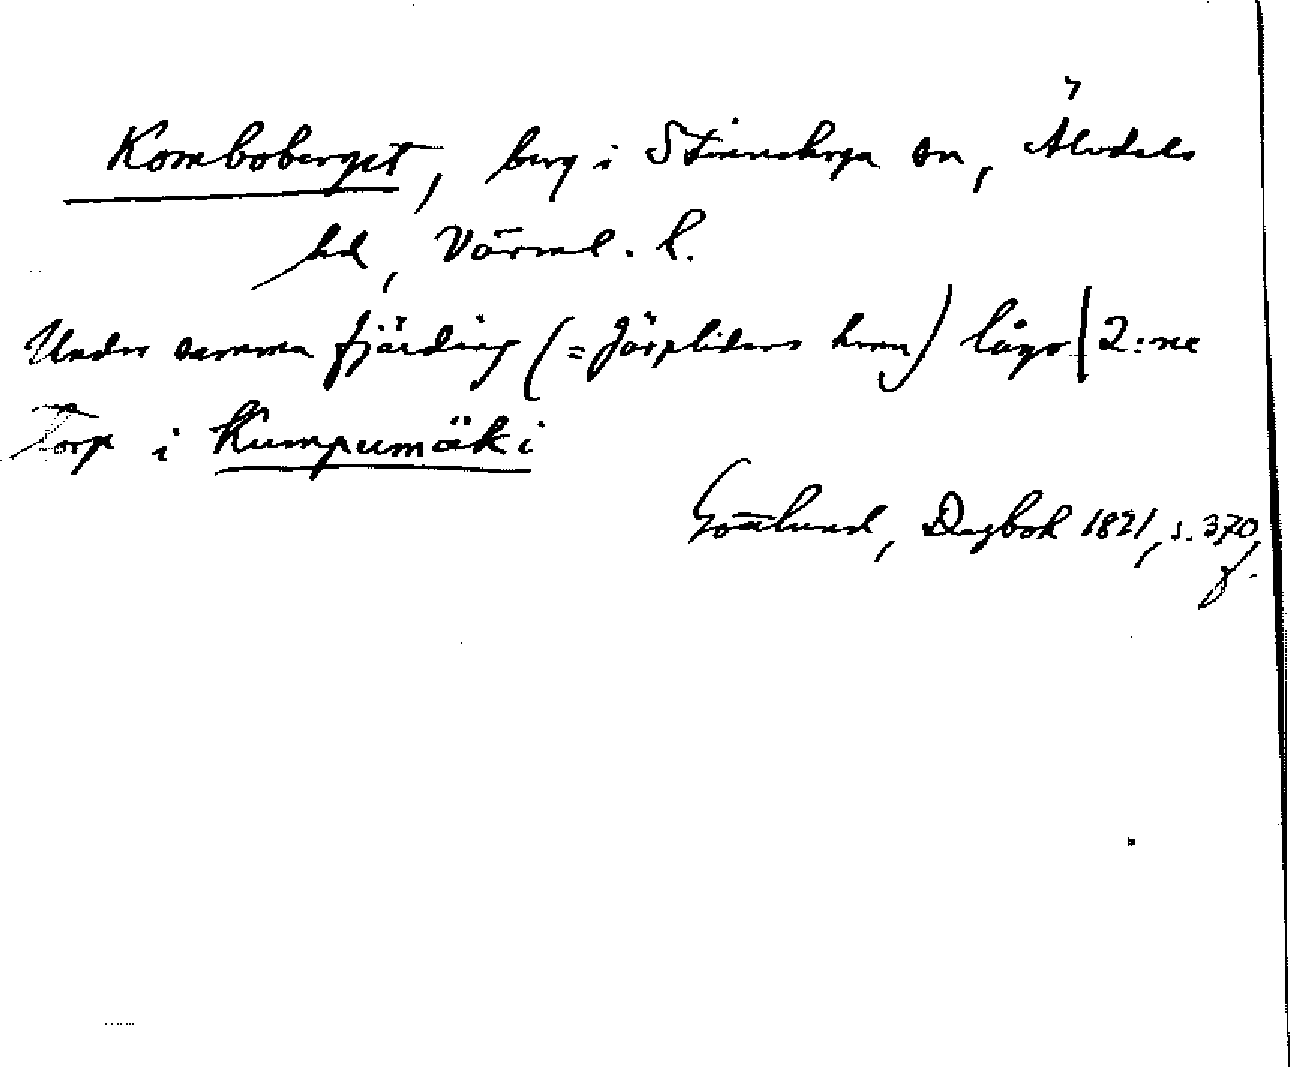 Komboberget, berg i S Finnskoga sn, Älvdals
hd, Värml. l.
Under samma fjärding (= Järplidens hmn) låge | 2:ne
Torp i Kumpumäki
Gottlund, Dagbok 1821, s. 370,
f.